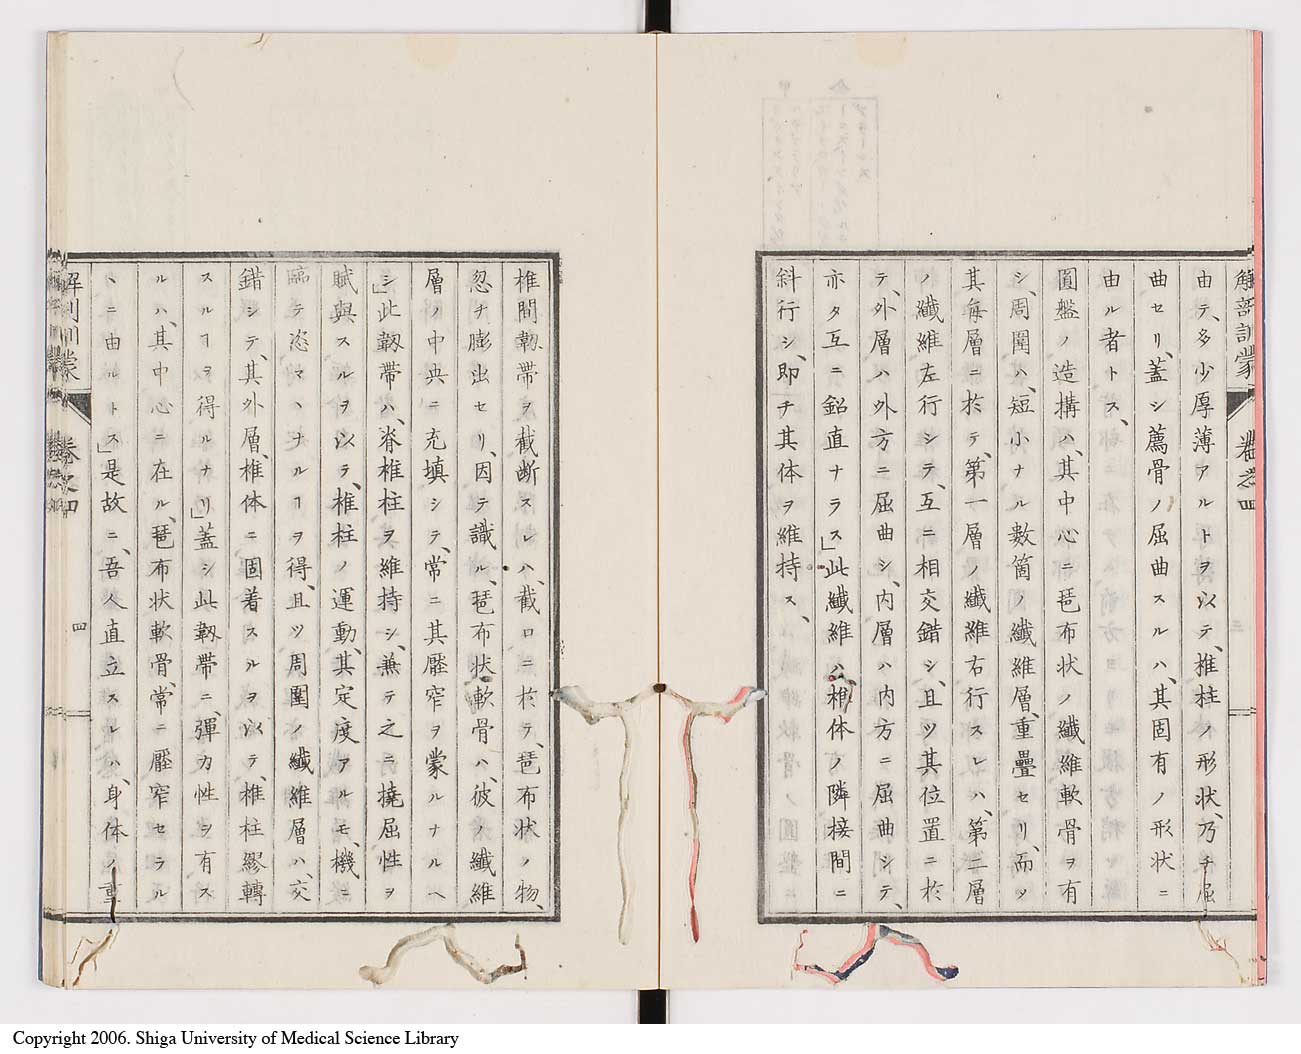 解剖訓蒙 卷之四
由テ、多少厚薄アルトヲ以テ、椎柱ノ形状、乃チ屈
曲セリ、蓋シ薦骨ノ屈曲スルハ、其固有ノ形状ニ
由ル者トス、
圓盤ノ造構ハ、其中心ニ琶布状ノ纖維軟骨ヲ有
シ、周圍ハ、短小ナル数箇ノ纖維層、重疊セリ、而ツ
其毎層ニ於テ、第一層ノ纖維右行スレハ、第二層
ノ纖維左行シテ、互ニ相交錯シ、且ツ其位置ニ於
テ、外層ハ外方ニ屈曲シ、内層ハ内方ニ屈曲シテ、
亦タ互ニ鉛直ナラス」此纖維ハ、椎体ノ隣接間ニ
斜行シ、即チ其体ヲ維持ス、
椎間靱帯ヲ截断スレハ、截口ニ於テ、琶布状ノ物、
忽チ膨出セリ、因テ識ル、琶布状軟骨ハ、彼ノ纖維
層ノ中央ニ充填シテ、常ニ其壓窄ヲ蒙ルナルヘ
シ」此靱帯ハ、脊椎柱ヲ維持シ、兼テ之ニ撓屈性ヲ
賦與スルヲ以テ、椎柱ノ運動、其定度アルモ、機ニ
臨テ恣マヽナルヿヲ得、且ツ周圍ノ纖維層ハ、交
錯シテ、其外層、椎体ニ固着スルヲ以テ、椎柱繆轉
スルヿヲ得ルナリ」蓋シ此靱帯ニ、彈力性ヲ有ス
ルハ、其中心ニ在ル、琶布状軟骨、常ニ壓窄セラル
ヽニ由ルトス」是故ニ、吾人直立スレハ、身体ノ重
解剖訓蒙 卷之四 四
Copyright 2006. Shiga University of Medical Science Library